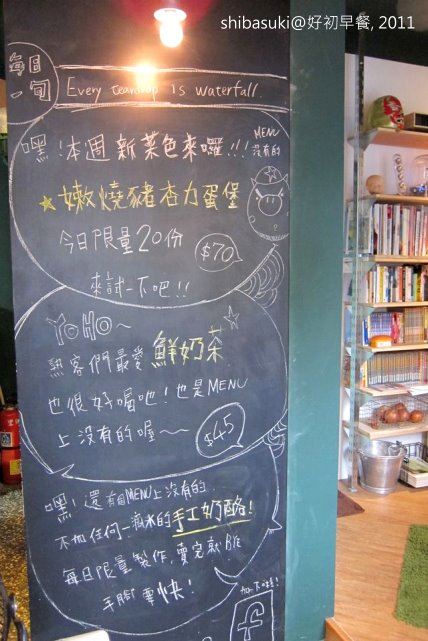 shibasuki@好初早餐, 2011
每日
一句
Every teardrop is waterfall.
嘿!本週新菜色來囉!!!
MENU
沒有的
★嫩燒豬杏力蛋堡
今日限量20份
$70
來試一下吧!!
YOHO~
熟客們最愛鮮奶茶
也很好喝吧!也是MENU
上沒有的喔~~
$45
嘿!還有個MENU上沒有的.
不加任何一滴水的手工奶酪!
每日限量製作,賣完就掰
手腳要快!
f